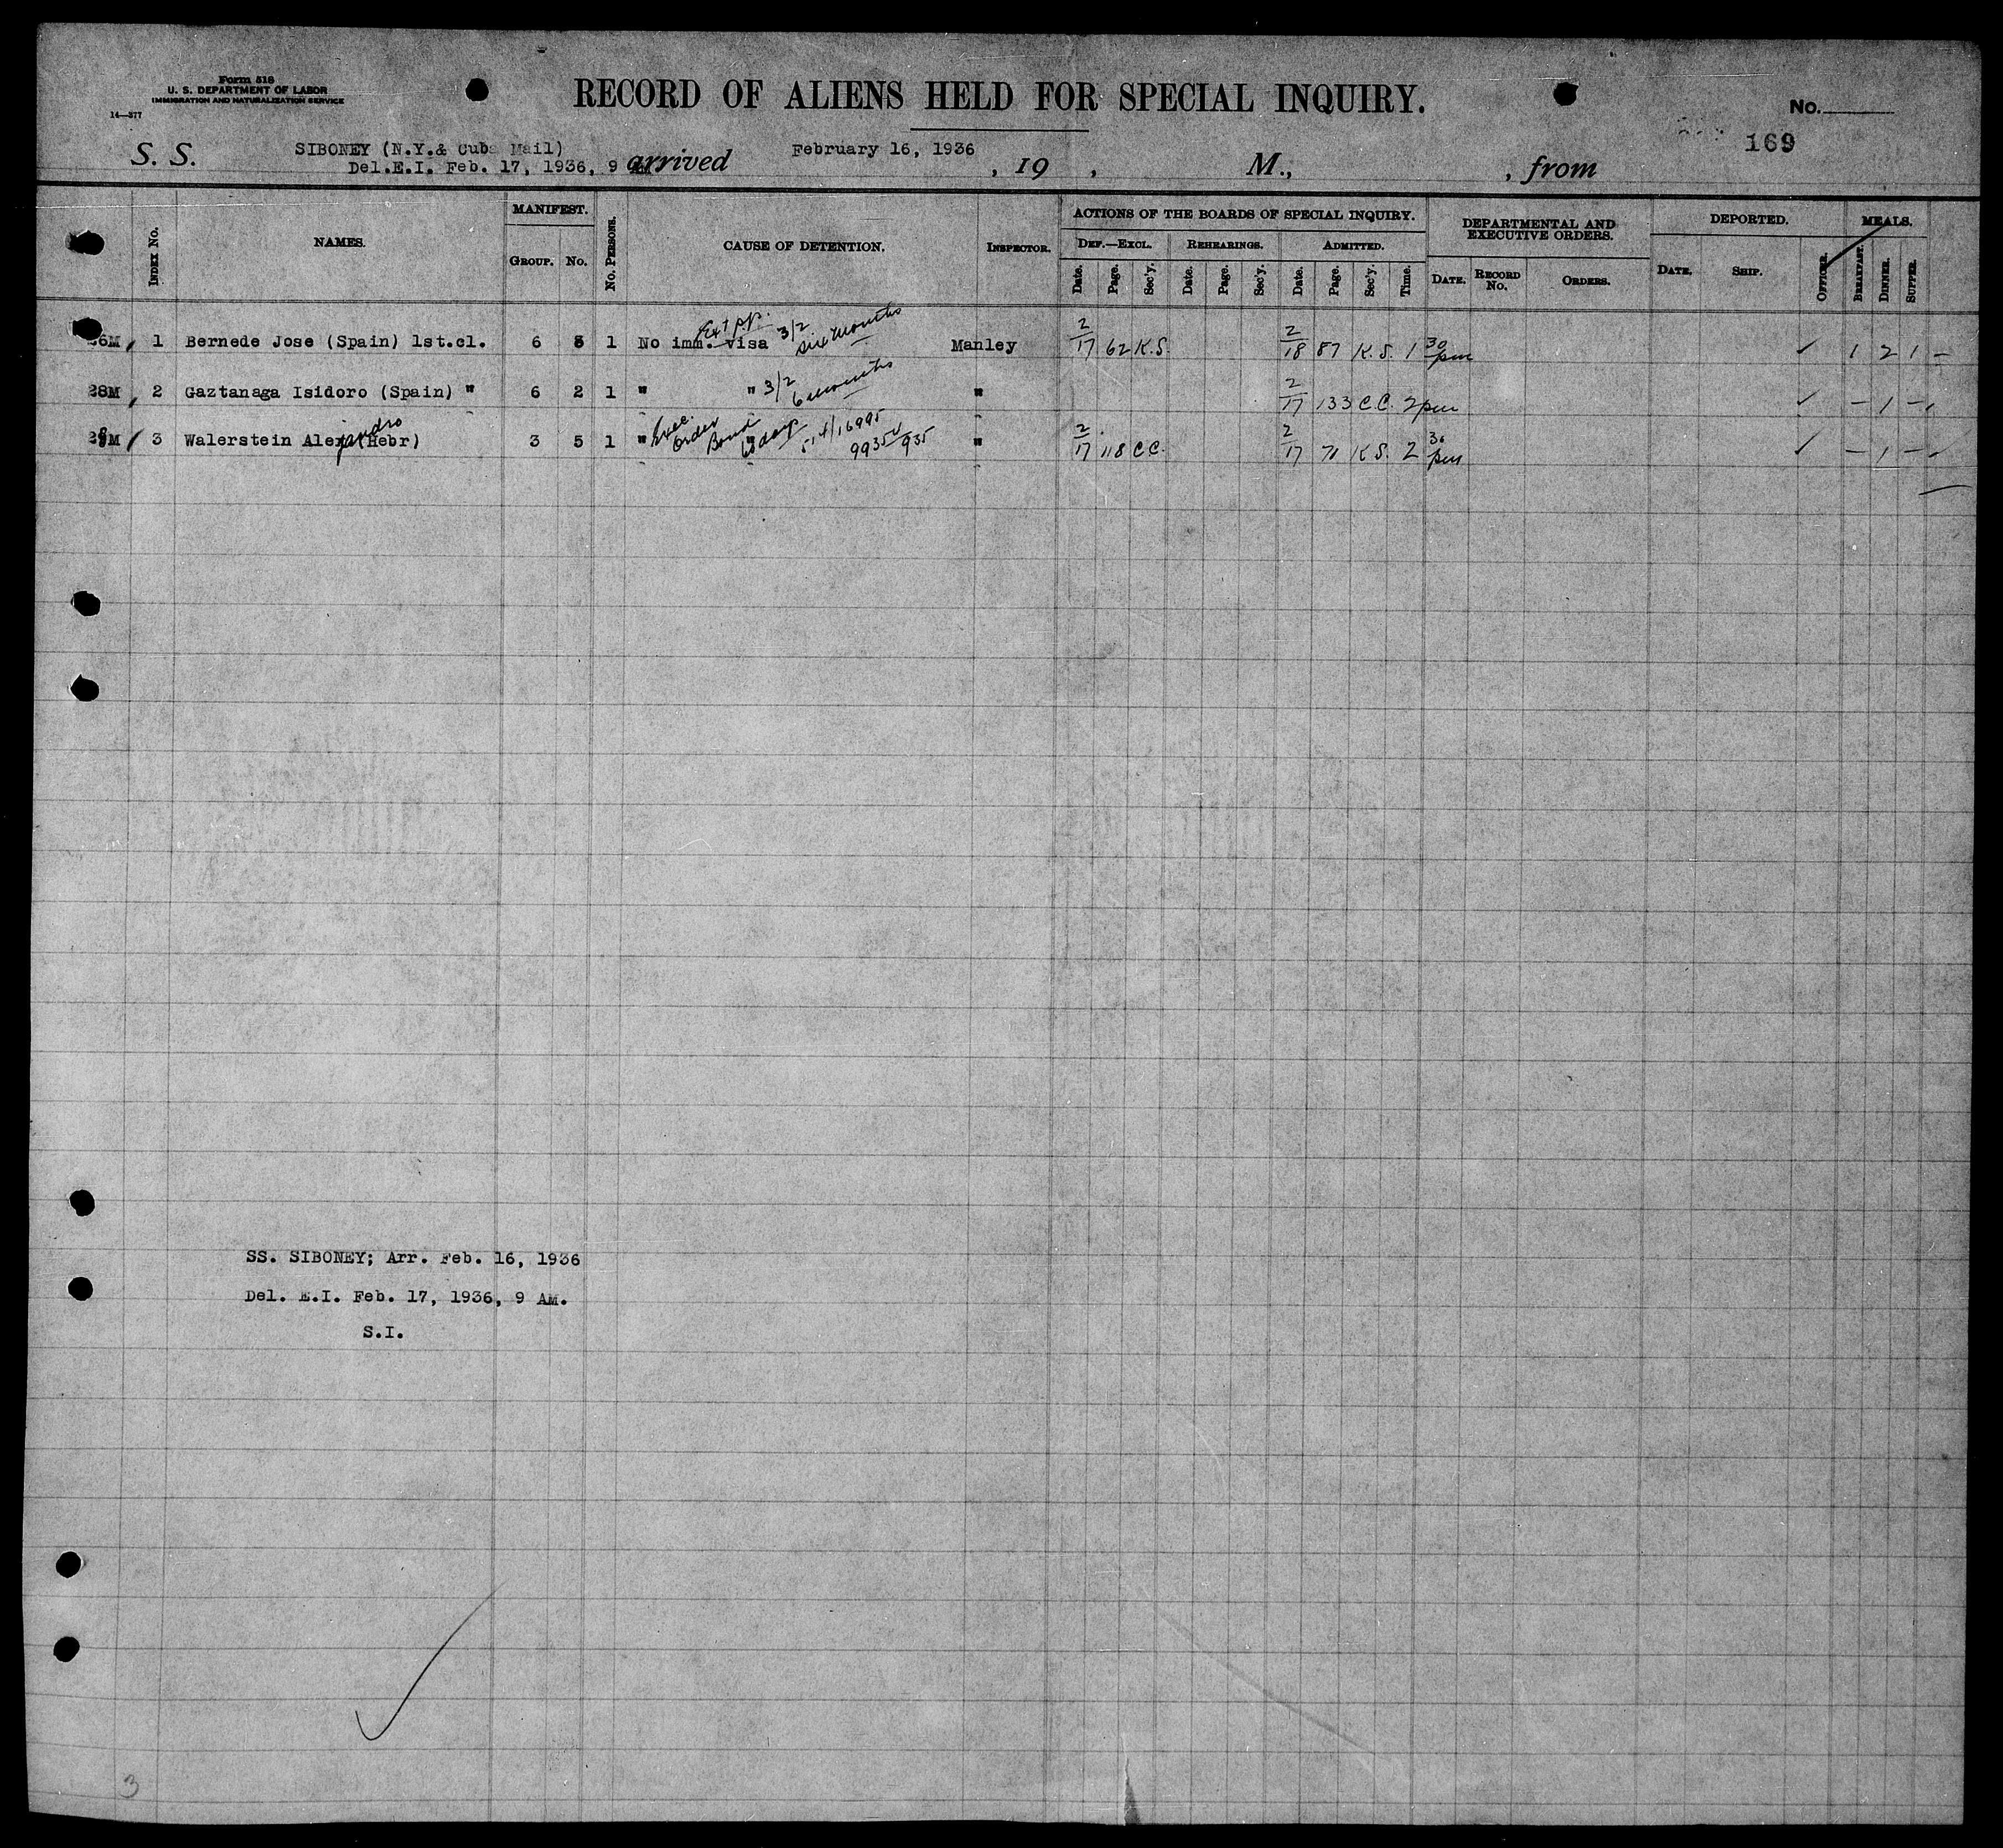 Form 518
U. S. DEPARTMENT OF LABOR
IMMIGRATION AND NATURALIZATION SERVICE
14—377
RECORD OF ALIENS HELD FOR SPECIAL INQUIRY.
No.
169
S. S. SIBONEY (N.Y.& Cuba Mail) arrived February 16, 1936, 19 , M., , from
Del.E.I. Feb. 17, 1936, 9
INDEX No. NAMES. MANIFEST. GROUP. No. No. PERSONS. CAUSE OF DETENTION. INSPECTOR. ACTIONS OF THE BOARDS OF SPECIAL INQUIRY. DEF.—EXCL. Date. Page. Sec'y. REHEARINGS. Date. Page. Sec'y. ADMITTED. Date. Page. Sec'y. Time. DEPARTMENTAL AND EXECUTIVE ORDERS. DATE. RECORD No. ORDERS. DEPORTED. DATE. SHIP. OFFICER. MEALS. BREAKFAST. DINNER. SUPPER.
6M 1 Bernede Jose (Spain) 1st.cl. 6 1 No imm. visa Ext p.p. 3/2 six months Manley 2/17 62 K.S. 2/18 87 K.S. 1 30 pm ✓ 1 2 1 —
28M 2 Gaztanaga Isidoro (Spain) " 6 2 1 " " 3/2 6 months " 2/17 133 C.C. 2 pm ✓ — 1 —
M 3 Walerstein Alejandro (Hebr) 3 5 1 " Exec. Order Bond 60 days 99354/935 " 2/17 118 C.C. 2/17 71 K.S. 2 30 pm ✓ — 1 — —
SS. SIBONEY; Arr. Feb. 16, 1936
Del. E.I. Feb. 17, 1936, 9 AM.
S.I.
3